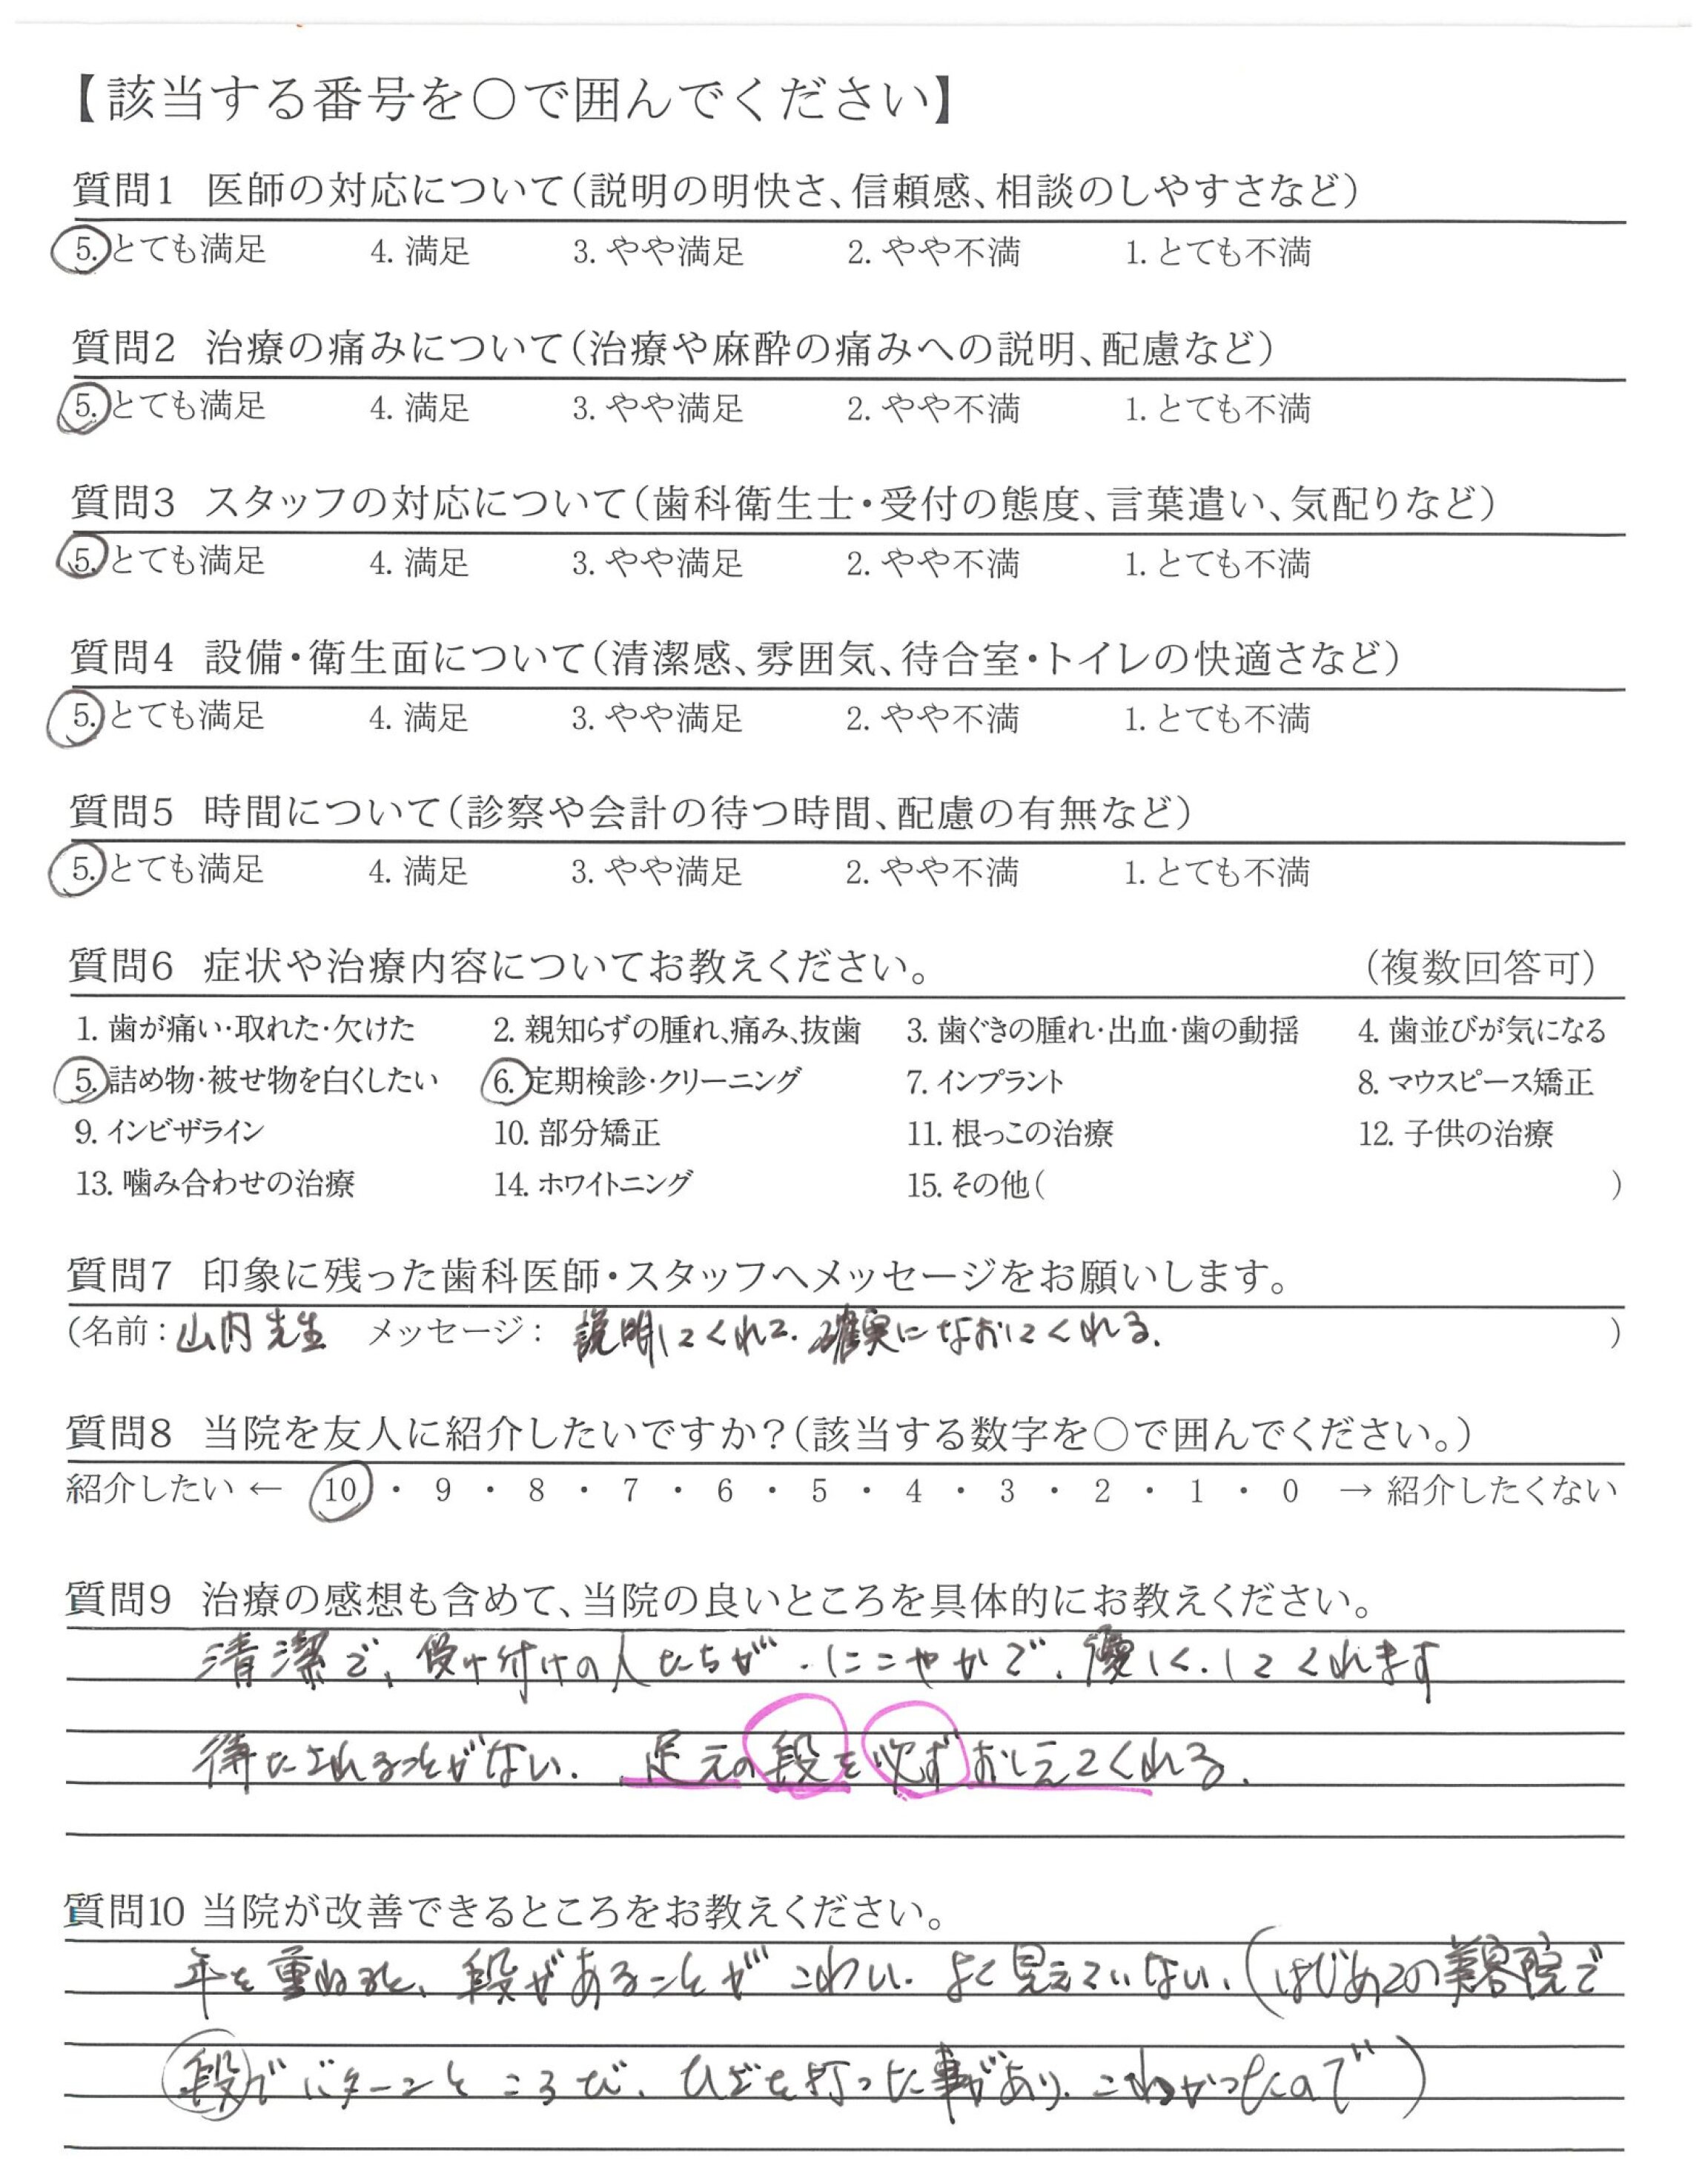 【該当する番号を○で囲んでください】
質問1 医師の対応について(説明の明快さ、信頼感、相談のしやすさなど)
5. とても満足 4. 満足 3. やや満足 2. やや不満 1. とても不満
質問2 治療の痛みについて(治療や麻酔の痛みへの説明、配慮など)
5. とても満足 4. 満足 3. やや満足 2. やや不満 1. とても不満
質問3 スタッフの対応について(歯科衛生士・受付の態度、言葉遣い、気配りなど)
5. とても満足 4. 満足 3. やや満足 2. やや不満 1. とても不満
質問4 設備・衛生面について(清潔感、雰囲気、待合室・トイレの快適さなど)
5. とても満足 4. 満足 3. やや満足 2. やや不満 1. とても不満
質問5 時間について(診察や会計の待つ時間、配慮の有無など)
5. とても満足 4. 満足 3. やや満足 2. やや不満 1. とても不満
質問6 症状や治療内容についてお教えください。 (複数回答可)
1. 歯が痛い・取れた・欠けた 2. 親知らずの腫れ、痛み、抜歯 3. 歯ぐきの腫れ・出血・歯の動揺 4. 歯並びが気になる
5. 詰め物・被せ物を白くしたい 6. 定期検診・クリーニング 7. インプラント 8. マウスピース矯正
9. インビザライン 10. 部分矯正 11. 根っこの治療 12. 子供の治療
13. 噛み合わせの治療 14. ホワイトニング 15. その他( )
質問7 印象に残った歯科医師・スタッフへメッセージをお願いします。
(名前：山内先生 メッセージ： 説明してくれて、確実になおしてくれる。 )
質問8 当院を友人に紹介したいですか？(該当する数字を○で囲んでください。)
紹介したい ← 10 ・ 9 ・ 8 ・ 7 ・ 6 ・ 5 ・ 4 ・ 3 ・ 2 ・ 1 ・ 0 → 紹介したくない
質問9 治療の感想も含めて、当院の良いところを具体的にお教えください。
清潔で、受け付けの人たちが、にこやかで、優しく、してくれます
待たされることがない。足元の段を必ずおしえてくれる。
質問10 当院が改善できるところをお教えください。
年を重ねると、段があることがこわい。よく見えていない。(はじめての美容院で
段でバターンところび、ひざを打った事があり、こわかったので)